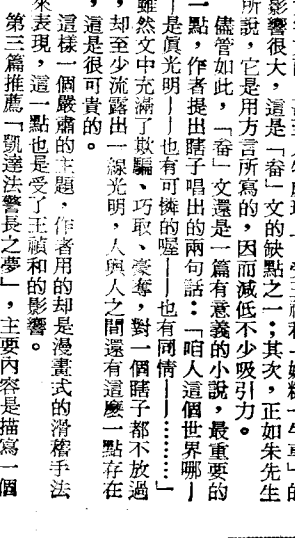 影響很大，這是「畚」文的缺點之一；其次，正如朱先生
所說，它是用方言所寫的，因而減低不少吸引力。
儘管如此，「畚」文還是一篇有意義的小說，最重要的
一點，作者提出瞎子唱出的兩句話：「咱人這個世界哪—
—是眞光明——也有可憐的喔——也有同情——………」
雖然文中充滿了欺騙、巧取、豪奪，對一個瞎子都不放過
，却至少流露出一線光明，人與人之間還有這麼一點存在
，這是很可貴的。
這樣一個嚴肅的主題，作者用的却是漫畫式的滑稽手法
來表現，這一點也是受了王禎和的影響。
第三篇推薦「凱達法警長之夢」，主要內容是描寫一個